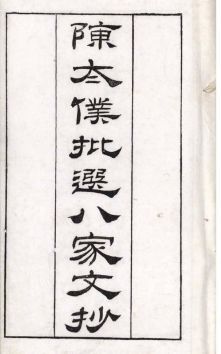 陳太僕批選八家文抄